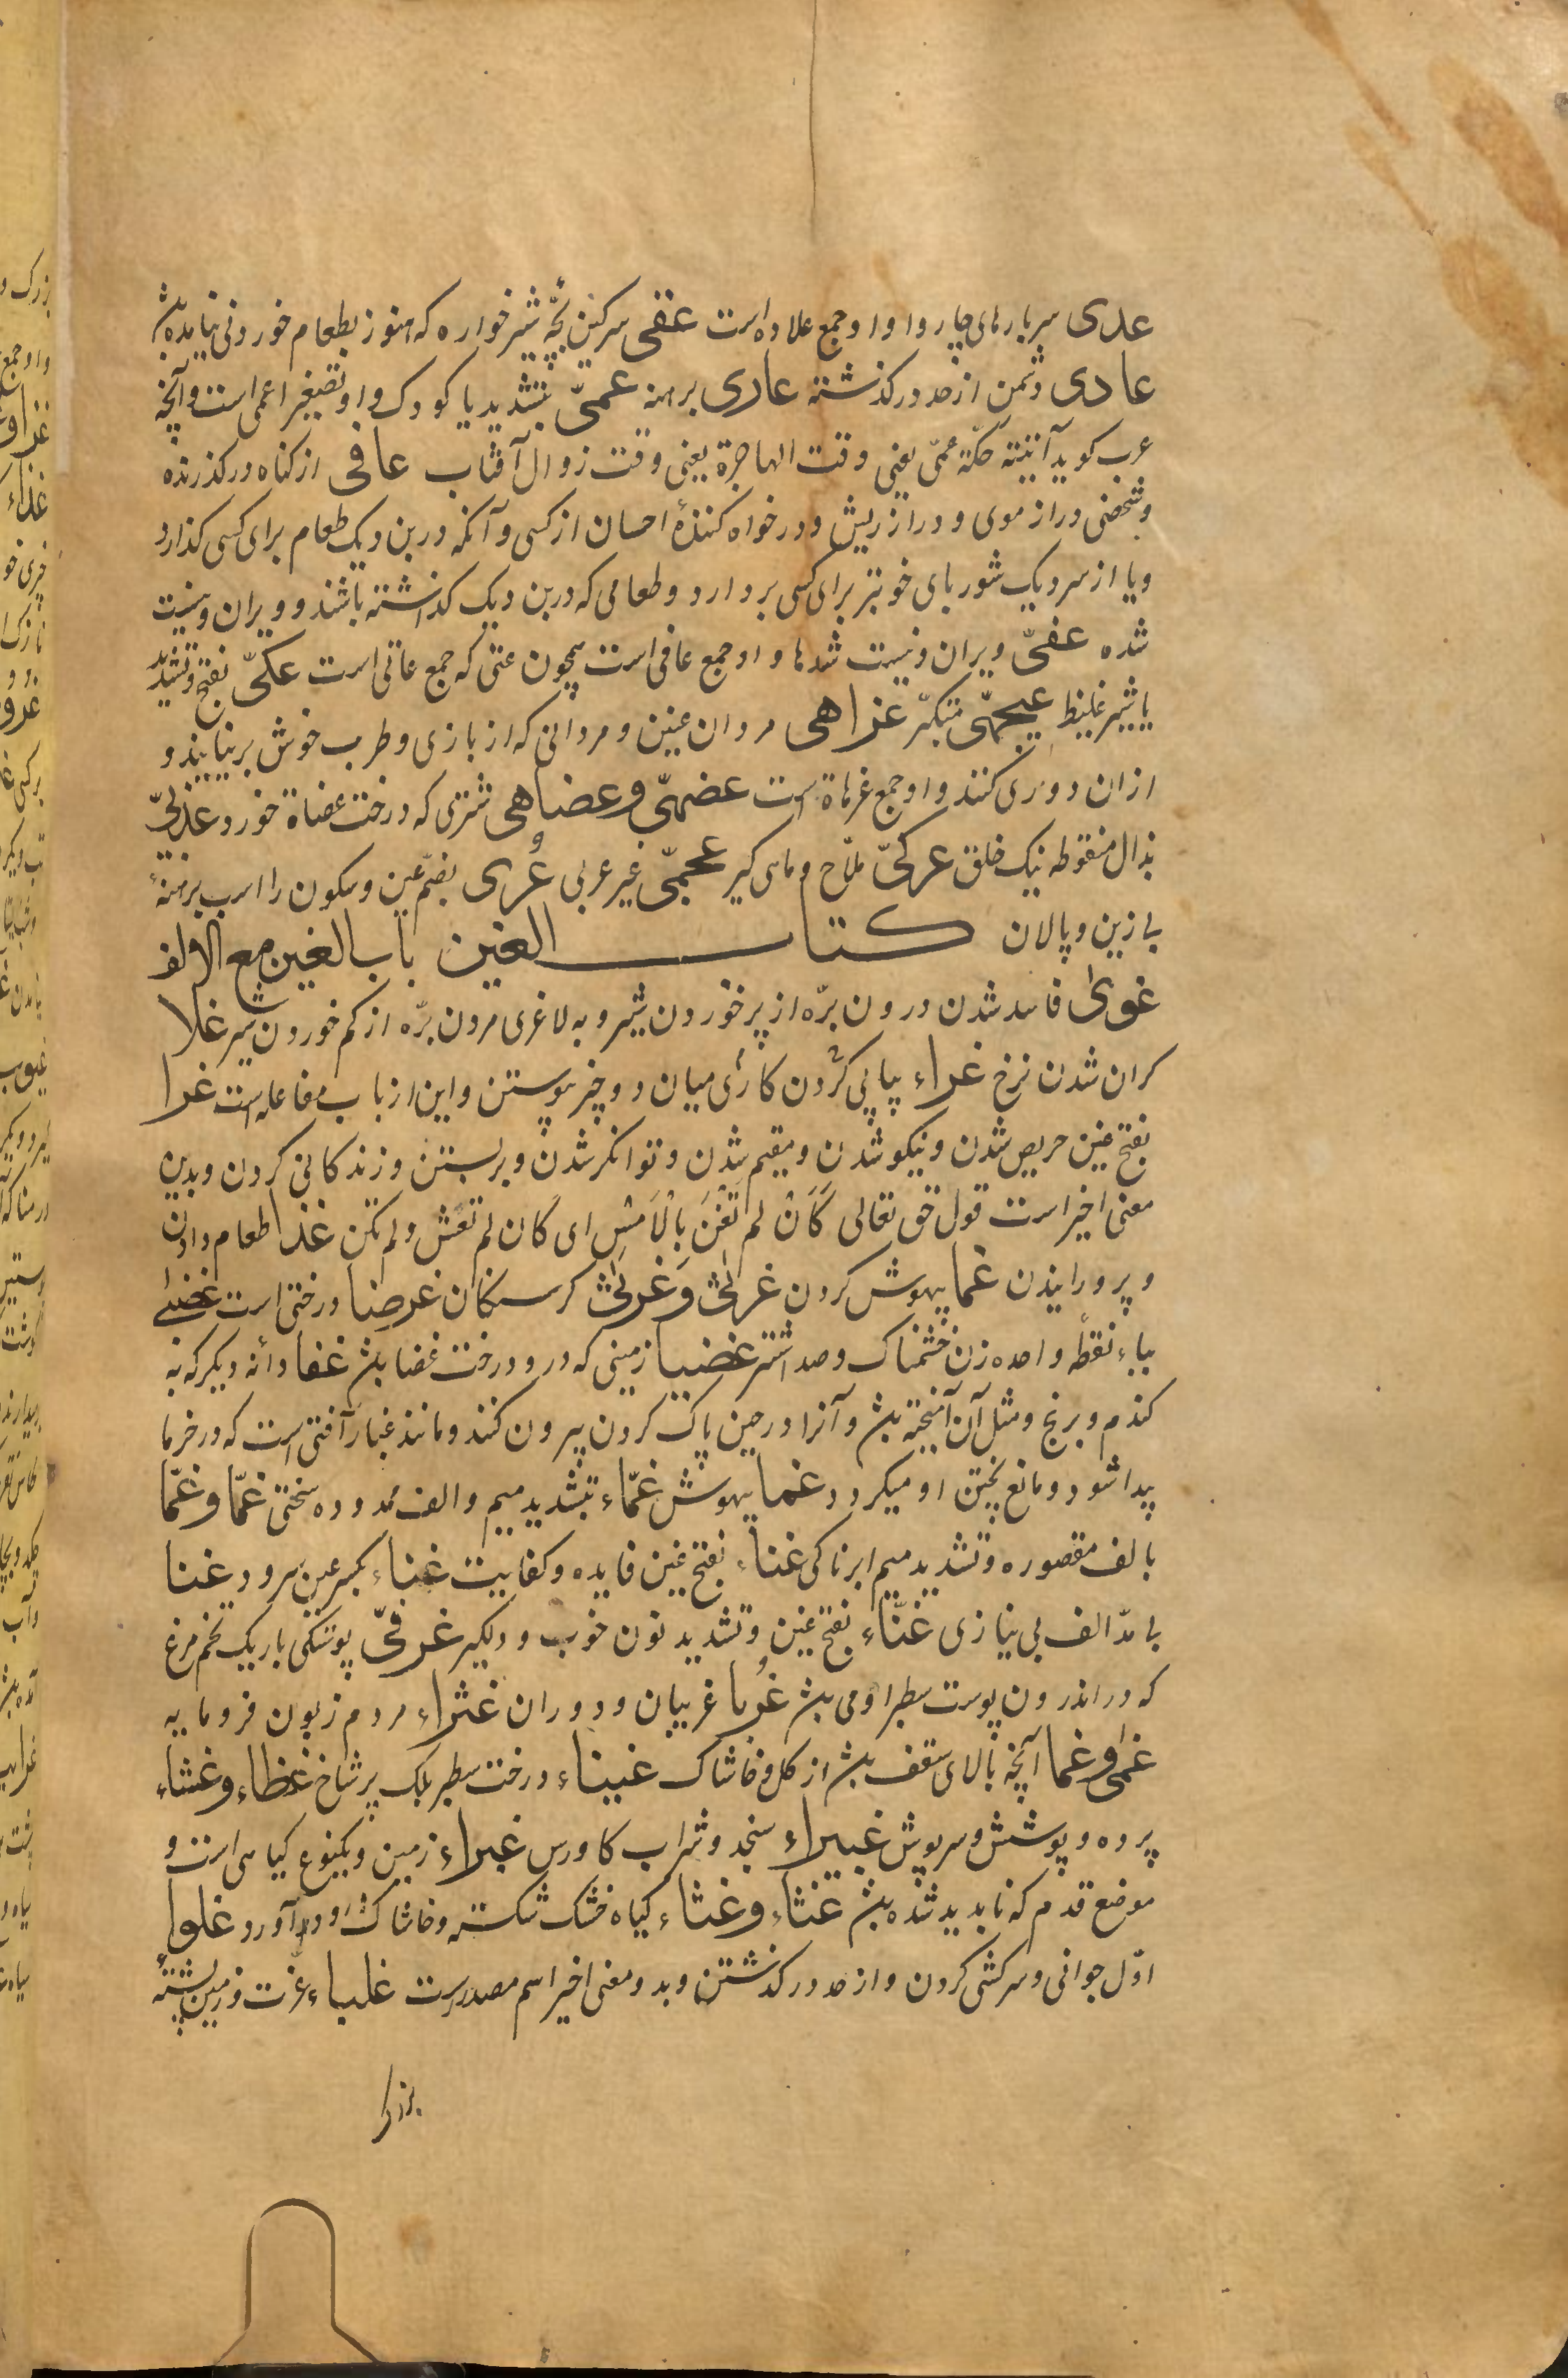 عدی سربارهای چاروا و او جمع علاوه است عقی سرکین بچّه شیرخواره که هنوز بطعام خوردنی نیامده باشد
عادی دشمن از حد درکذشته عاری برهنه عمیّ بتشدید یا کودک و او تصغیر اعمی است و آنچه
عرب کوید آتیته صکّة عمّی یعنی وقت الهاجرة یعنی وقت زوال آفتاب عافی از کناه درکذرنده
و شخصی دراز موی و دراز ریش و درخواه کنندهٔ احسان از کسی و آنکه در بن دیک طعام برای کسی کذارد
و یا از سر دیک شوربای خوبتر برای کسی بردارد و طعامی که در بن دیک کذاشته باشند و ویران و نیست
شده عفیّ ویران و نیست شدها و او جمع عافی است همچون عتی که جمع عاتی است عکیّ بفتح و تشدید
یا شیر غلیظ عیجهّی متکبّر عزاهی مردان عنین و مردانی که از بازی و طرب خوش برنیایند و
ازان دوری کنند و او جمع عزهاة است عضهیّ و عضاهی شتری که درخت عضاة خورد عذلیّ
بذال منقوطه نیک خلق عرکیّ ملّاح و ماهی کیر عجمیّ غیر عربی عُری بضمّ عین و سکون را اسب برهنهٔ
بی زین و پالان کتاب الغین باب الغین مع الالف
غوی فاسد شدن درون برّه از پر خوردن شیر و به لاغری مردن برّه از کم خوردن شیر غلا
کران شدن نرخ غراء پیاپی کردن کاری میان دو چیز پیوستن و این از باب مفاعله است غرا
بفتح غین حریص شدن و نیکو شدن و مقیم شدن و توانکر شدن و بربستن و زندکانی کردن و بدین
معنی اخیر است قول حق تعالی کَأن لم تَغْنَ بِالأمسِ ای کان لم تعش ولم تکن غذا طعام دادن
و پرورانیدن غما بیهوش کردن غرثی و غرثی کرسنکان غرصنا درختی است غضبی
بباء نقطه واحده زن خشمناک و صد اشتر غضیا زمینی که درو درخت غضا باشد غفا دانه دیکر که به
کندم و برنج و مثل آن آمیخته باشد و آنرا در حین پاک کردن بیرون کنند و مانند غبار آفتی است که در خرما
پیدا شود و مانع پختن او میکردد غما بیهوش غمّاء بتشدید میم و الف ممدوده سختی غمّا و غمّا
بالف مقصوره و تشدید میم ابرناکی غناء بفتح غین فایده و کفایت غناء بکسر غین سرود غنا
بی مدّ الف بی نیازی غنّاء بفتح غین و تشدید نون خوب و دیکیر غرقیّ پوستکی باریک تخم مرغ
که در اندرون پوست سطبر او می باشد غُربا غریبان و دوران غثراء مردم زبون فرومایه
غمی و غما آنچه بالای سقف باشد از کل و خاشاک غیناء درخت سطبر بلک پرشاخ غطاء و غشاء
پرده و پوشش و سرپوش غبیراء سنجد و شراب کاورس غبراء زمین و یکنوع کیاهی است و
موضع قدم که نابدید شده باشد غثاء و غثاء کیاه خشک شکسته و خاشاک او و درآورد غلوا
اوّل جوانی و سرکشی کردن و از حد درکذشتن و بدو معنی اخیر اسم مصدر است غلباء عزّت و زمین پشتهٔ
بزرک